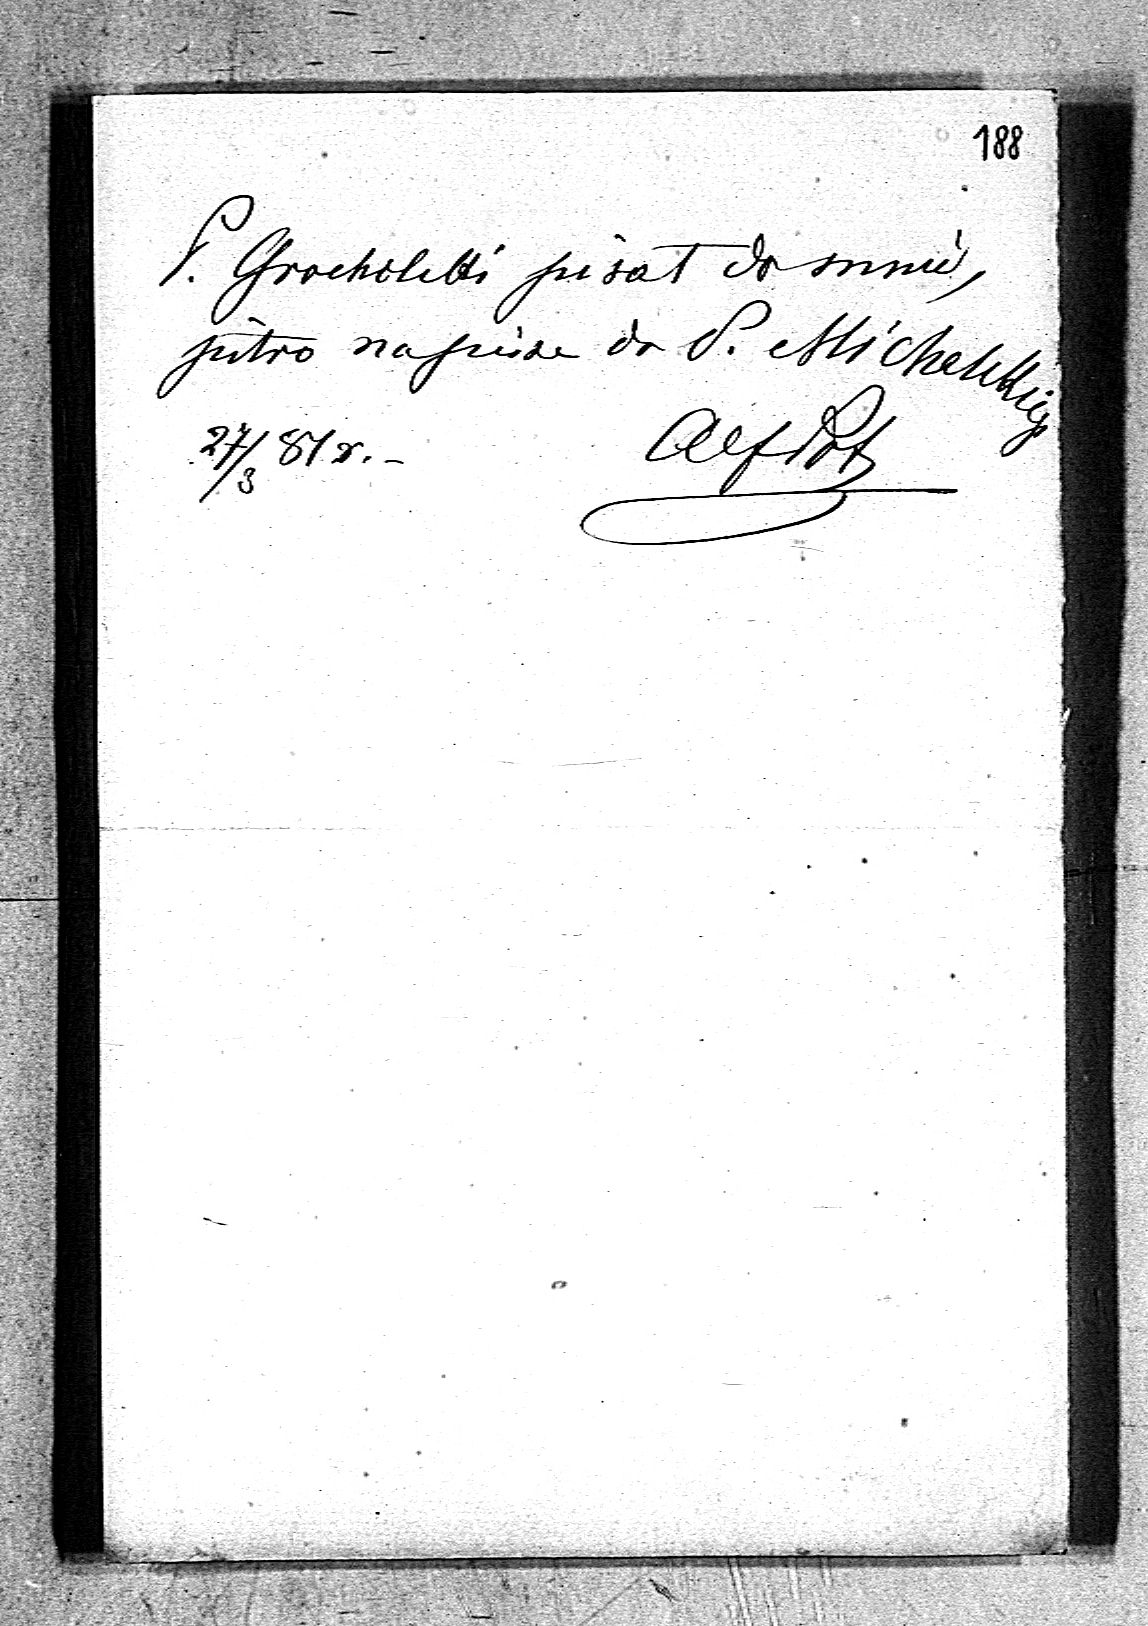 188
P. Grocholski pisał do mnie,
jutro napisze do P. Michalskiego
27/3 81 r. –
Alf Pot